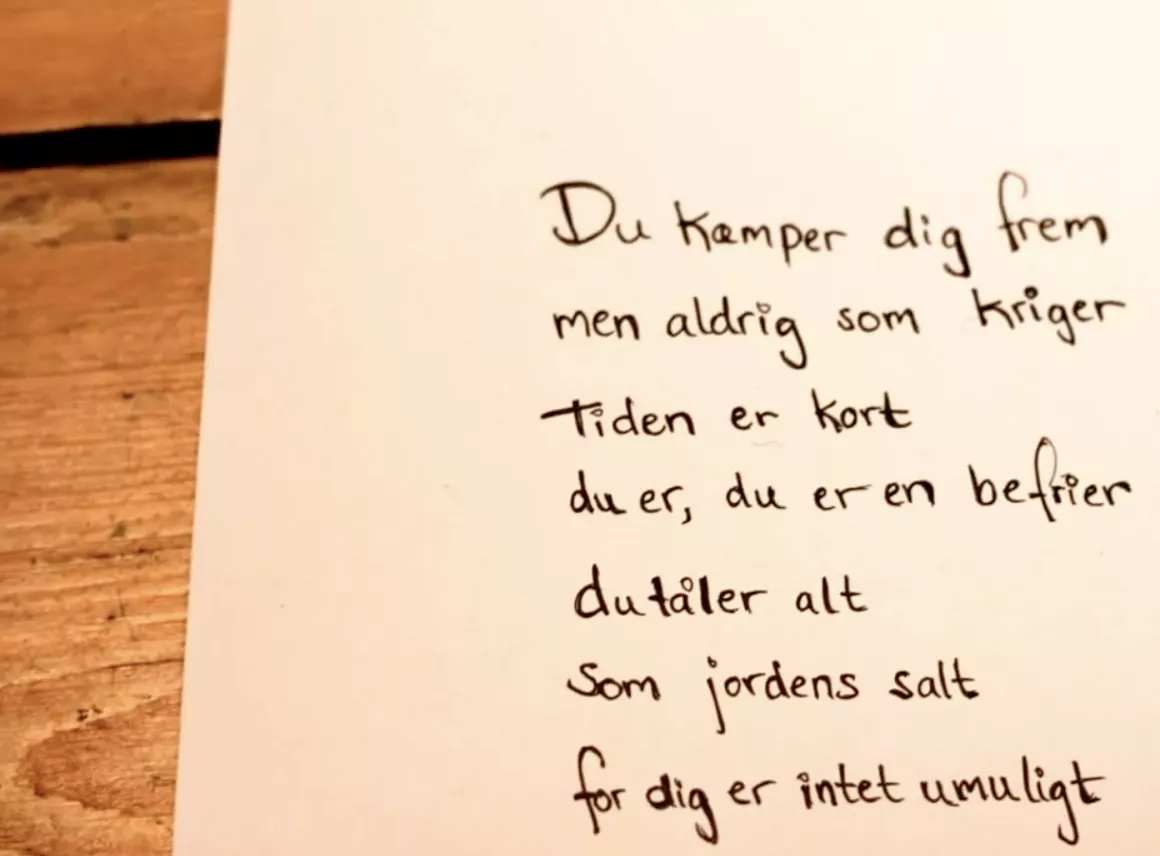 Du kæmper dig frem
men aldrig som kriger
Tiden er kort
du er, du er en befrier
du tåler alt
Som jordens salt
for dig er intet umuligt